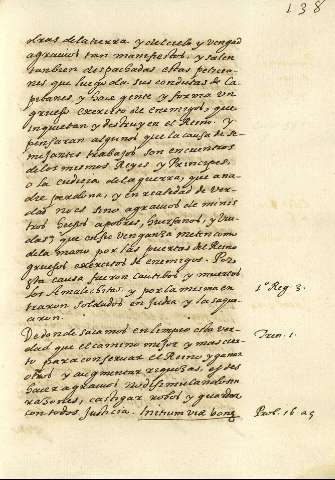 138
obras de la tierra y del cielo y vengad
agravios tan manifiestos, y salen
tambien despachadas estas peticio
nes que luego da sus condutas de Ca
pitanes y hace gente y forma un
grueso exercito de enemigos, que
inquietan y destruyen el Reino. y
pensaran algunos que la causa de se
mejantes trabajos son encuentros
de los mismos Reyes y Principes,
o la cudicia de la guerra, que ana
die perdona, y en realidad de ver
dad no es sino agravios de minis
tros hechos a pobres, huerfanos, y viu
das, que
de la mano por las puertas del Reino
gruesos exercitos de enemigos. Por
esta causa fueron cautibos y muertos
los Amalechitas, y por la misma en
traron soldados en Judea y la saque
aron.
1º Reg 3.
De donde sacamos en limpio esta ver
dad que el camino mejor y mas cier
to para conservar el Reino y ganar
otros y augmentar riquezas, es des
hacer agravios no disimulando sin
razones, castigar robos y guardar
con todos Justicia. Initium viæ bonæ
Tren. 1.
Prob. 16 a 5